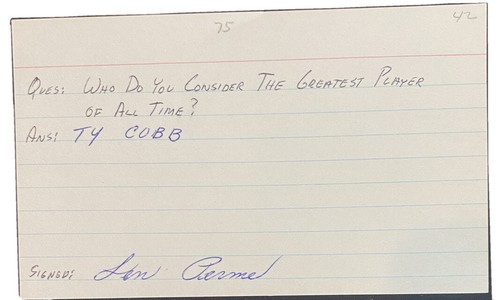 75
42
Ques: Who Do You Consider The Greatest Player
of All Time?
Ans: TY COBB
Signed: Len Perme